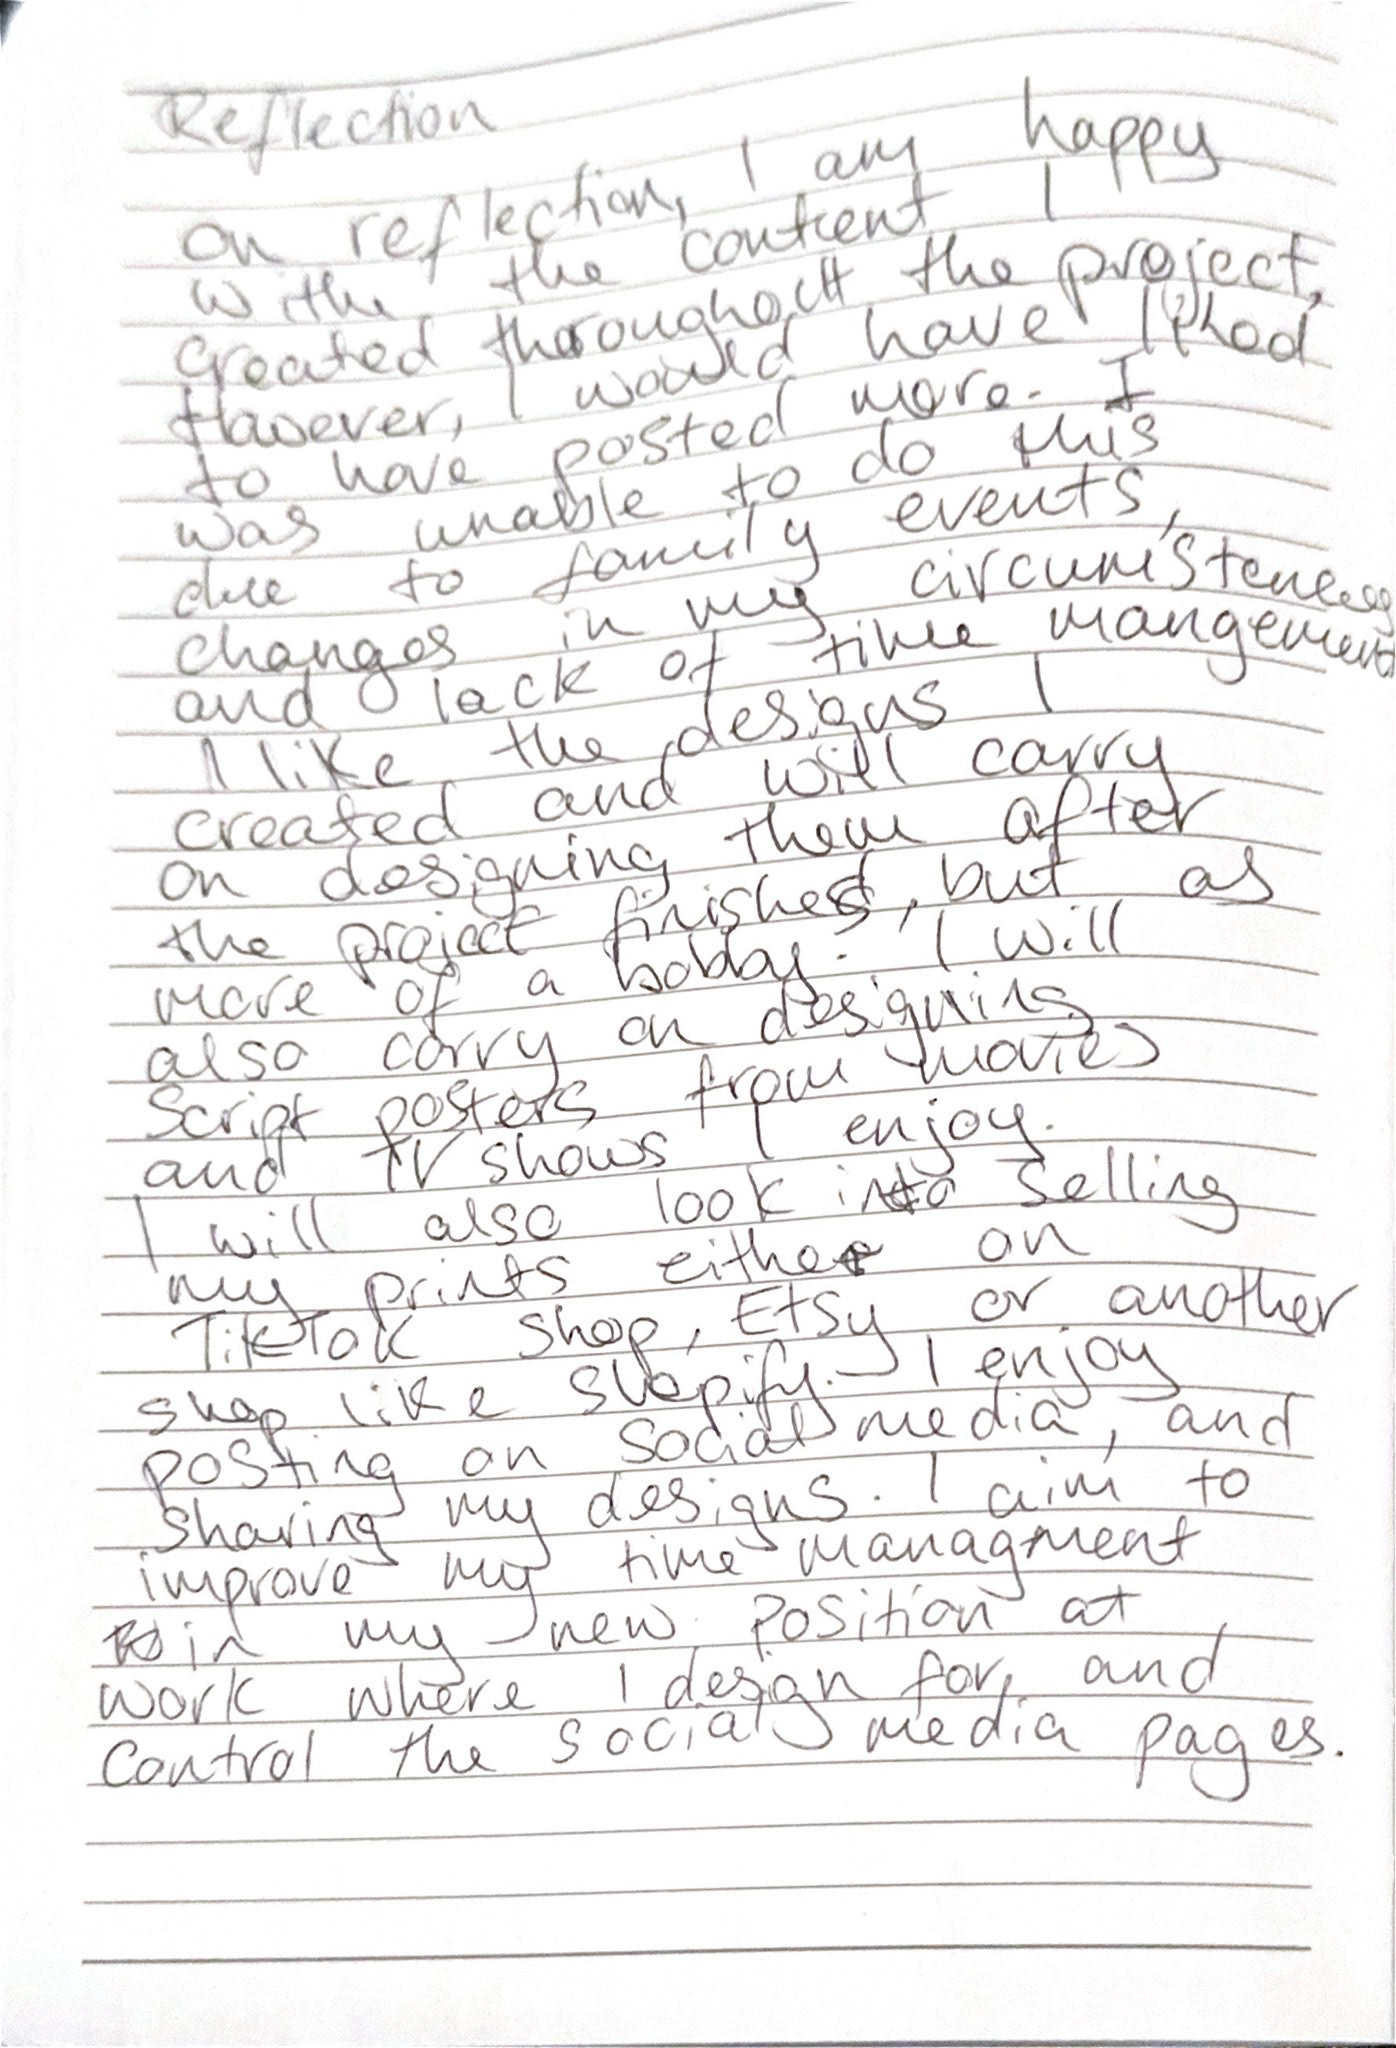 Reflection
On reflection, I am happy
withe the content I
created thoroughout the project,
However, I would have liked
to have posted more. I
was unable to do this
due to family events,
changes in my circumisteness
and lack of time mangement
I like the designs I
created and will carry
on designing them after
the project finishes, but as
more of a hobby. I will
also carry on designing
Script posters from movies
and TV shows I enjoy.
I will also look into selling
my prints either on
TikTok shop, Etsy or another
shop like shopify. I enjoy
posting on social media, and
sharing my designs. I aim to
improve my time managment
in my new position at
work where I design for, and
control the social media pages.